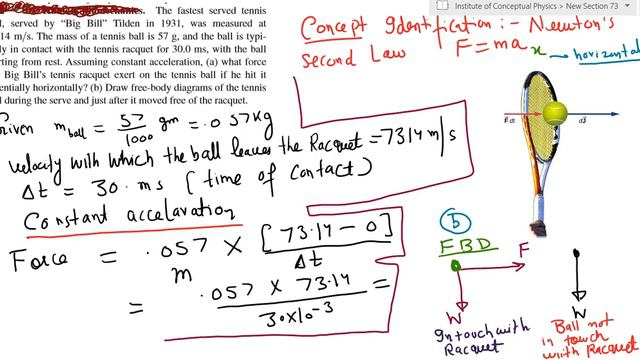 Institute of Conceptual Physics > New Section 73
The fastest served tennis
served by “Big Bill” Tilden in 1931, was measured at
14 m/s. The mass of a tennis ball is 57 g, and the ball is typi-
y in contact with the tennis racquet for 30.0 ms, with the ball
rting from rest. Assuming constant acceleration, (a) what force
Big Bill’s tennis racquet exert on the tennis ball if he hit it
entially horizontally? (b) Draw free-body diagrams of the tennis
l during the serve and just after it moved free of the racquet.
Concept Identification :- Newton's
second Law F = ma x → horizontal
Given m ball = 57/1000 gm = .057 kg
velocity with which the ball leaves the Racquet = 73.14 m/s
Δt = 30. ms (time of contact)
Constant accelaration
Force = .057 × [73.14 - 0] / Δt
m
= .057 × 73.14 / 30×10⁻³ =
(b)
FBD
F
W
In touch with
Racquet
W
Ball not
in touch
with Racquet